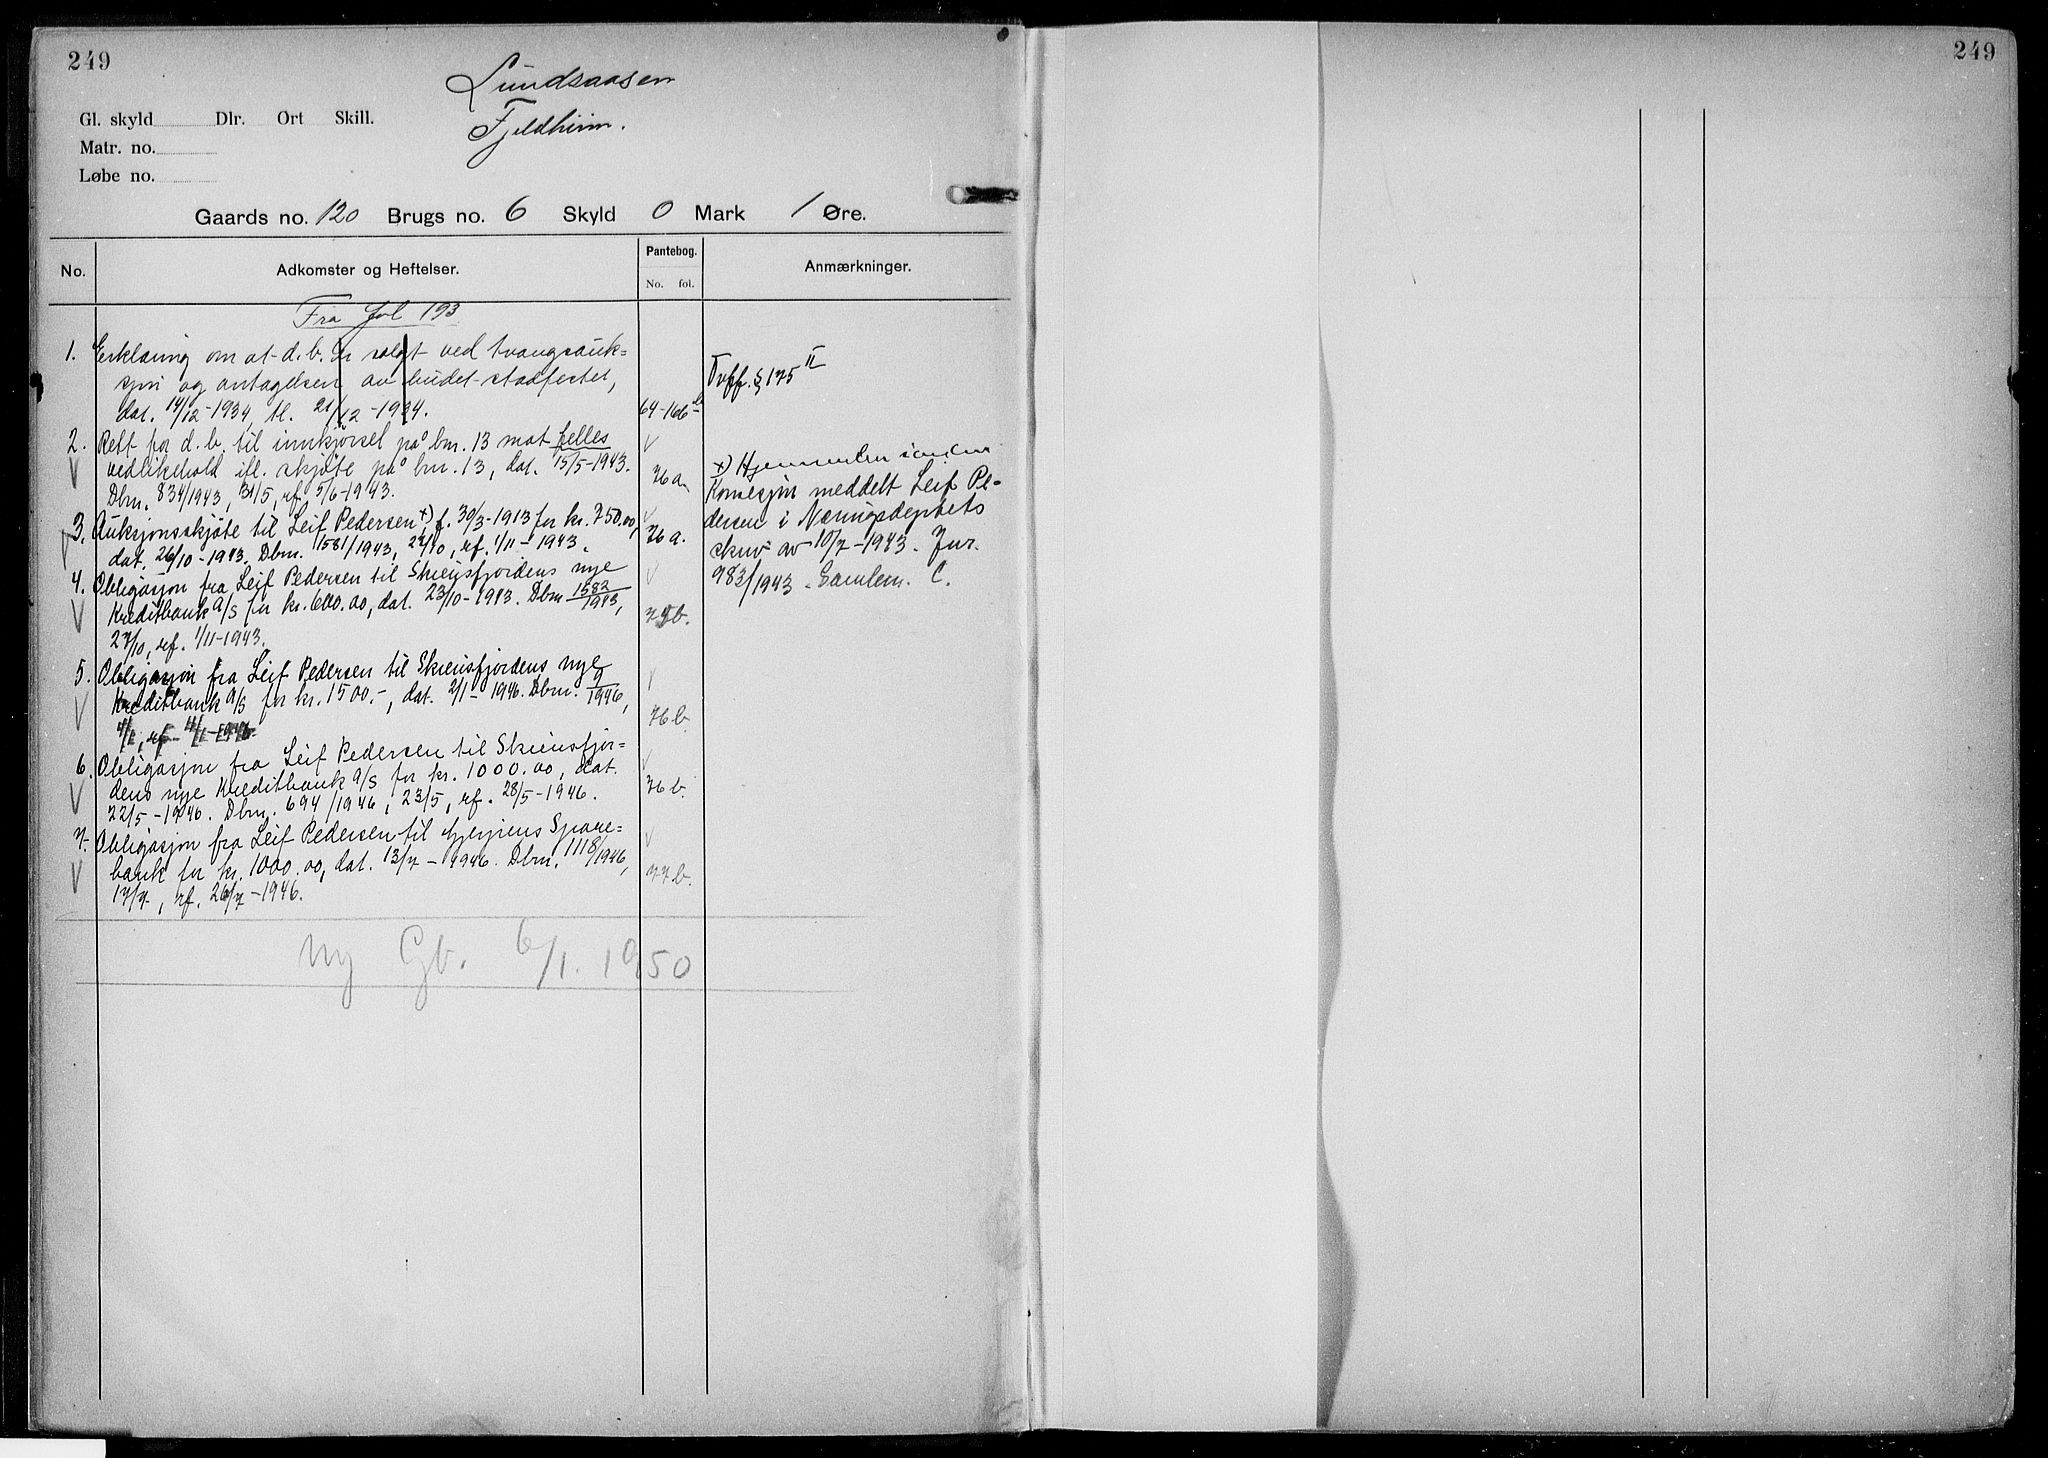 249
249
Lundsaasen
Fjeldheim.
Gl. skyld Dlr. Ort Skill.
Matr. no.
Løbe no.
Gaards no. 120 Brugs no. 6 Skyld 0 Mark 1 Øre.
No. Adkomster og Heftelser. Pantebog. Anmærkninger.
No. fol.
Fra fol 193
1. Erklæring om at d. b. er solgt ved tvangsauk=
sjon og antagelsen av budet stadfestet,
dat. 14/12-1934, tl. 21/12-1934. 64-166b
Tvff. § 175 II
2. Rett for d. b. til innkjørsel på bnr. 13 mot felles
vedlikehold ifl. skjøte på bnr. 13, dat. 15/5-1943. 76a
Dbnr. 834/1943, 31/5, rf. 5/6-1943.
3. Auksjonsskjøte til Leif Pedersen x), f. 30/3-1913 for kr. 750.00,
dat. 26/10-1943. Dbnr. 1581/1943, 27/10, rf. 1/11-1943. 76a.
x)
Konsesjon meddelt Leif Pe-
dersen i Næringsdeptets
skriv av 10/7-1943. Jnr.
983/1943. Samlem. C.
4. Obligasjon fra Leif Pedersen til Skiensfjordens nye
Kreditbank a/s for kr. 600.00, dat. 23/10-1943. Dbnr 1582/1943,
27/10, rf. 1/11-1943. 75b.
5. Obligasjon fra Leif Pedersen til Skiensfjordens nye
Kreditbank a/s for kr. 1500.-, dat. 2/1-1946. Dbnr. 9/1946,
4/1, rf. 11/1-1946. 76b
6. Obligasjon fra Leif Pedersen til Skiensfjor=
dens nye Kreditbank a/s for kr. 1000.00, dat.
22/5-1946. Dbnr. 694/1946, 23/5, rf. 28/5-1946. 76b.
7. Obligasjon fra Leif Pedersen til Gjerpens Spare=
bank for kr. 1000.00, dat. 13/7-1946. Dbnr. 1118/1946,
17/7, rf. 26/7-1946. 77b.
Ny Gb. 6/1. 1950